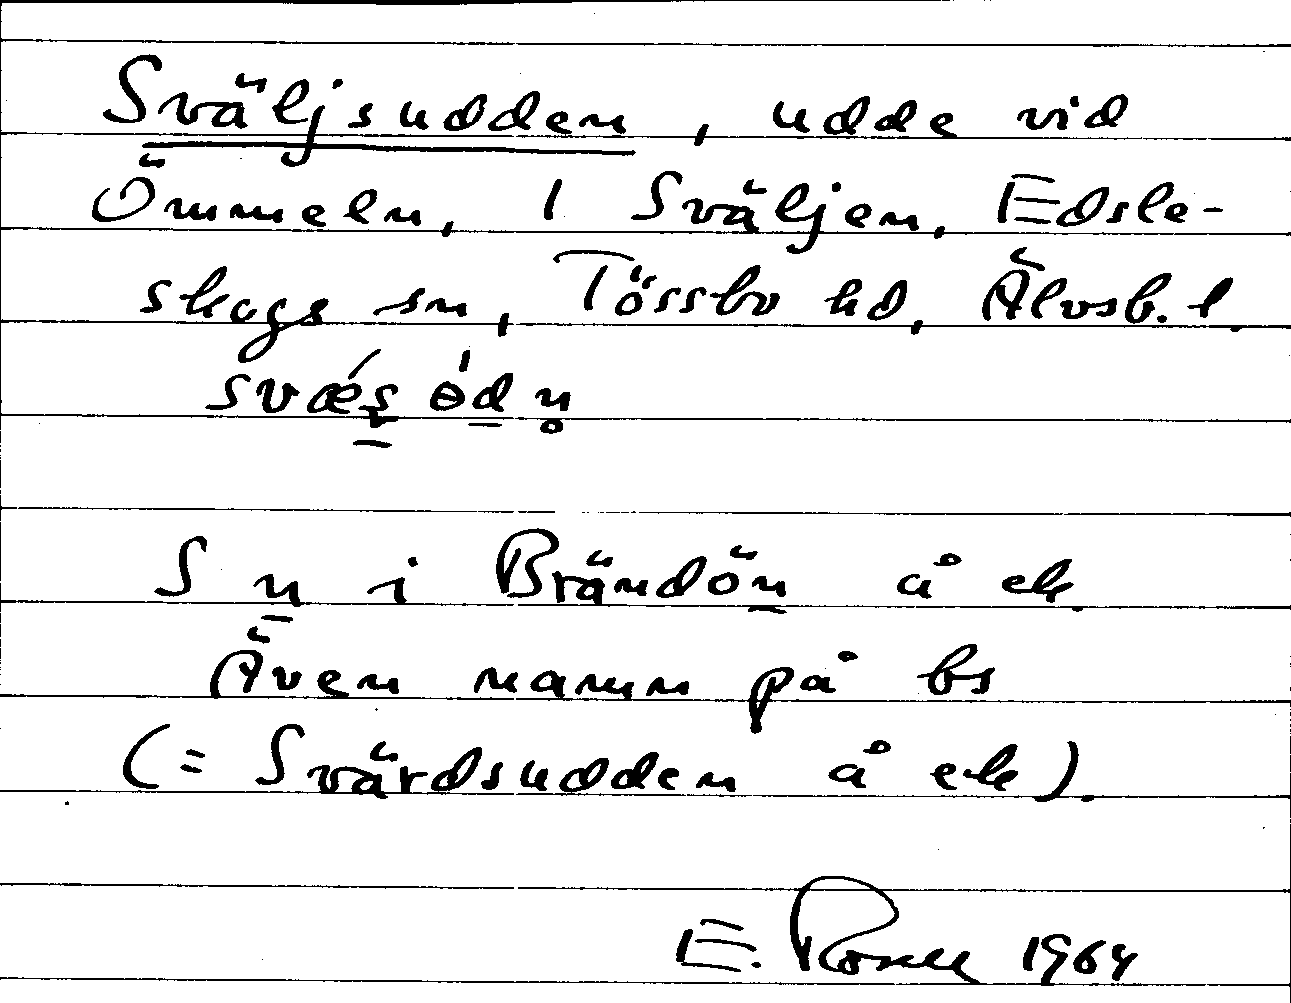 Sväljsudden, udde vid
Ömmeln, 1 Sväljen, Edsle-
skogs sn, Tössbo hd, Älvsb. l.
S n i Brändön å ek.
Även namn på bs
(= Svärdsudden å ek).
E. 1964